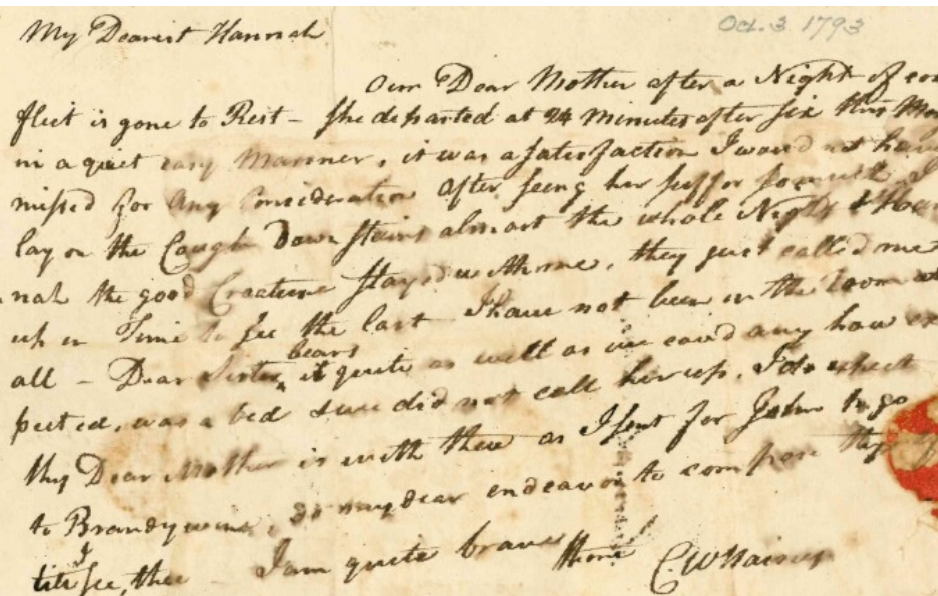 Oct. 3 1793
My Dearest Hannah
Our Dear Mother after a Night of con
flict is gone to Rest - She departed at 24 minutes after six this Mor
in a quiet easy Manner, it was a satisfaction I would not have
missed for any Consideration after seing her suffor so much I
lay on the Cough Down stairs almost the whole Night & Han
nah the good Creature stayed with me, they just called me
up in Time to see the last I have not been in the room at
all - Dear Sister bears it quite as well as we coud any how ex
pected, was a bed & we did not call her up, I do expect
thy Dear Mother is with thee as I sent for John to go
to Brandywine, do my dear endeavor to compose thy
till I see thee I am quite brave thine